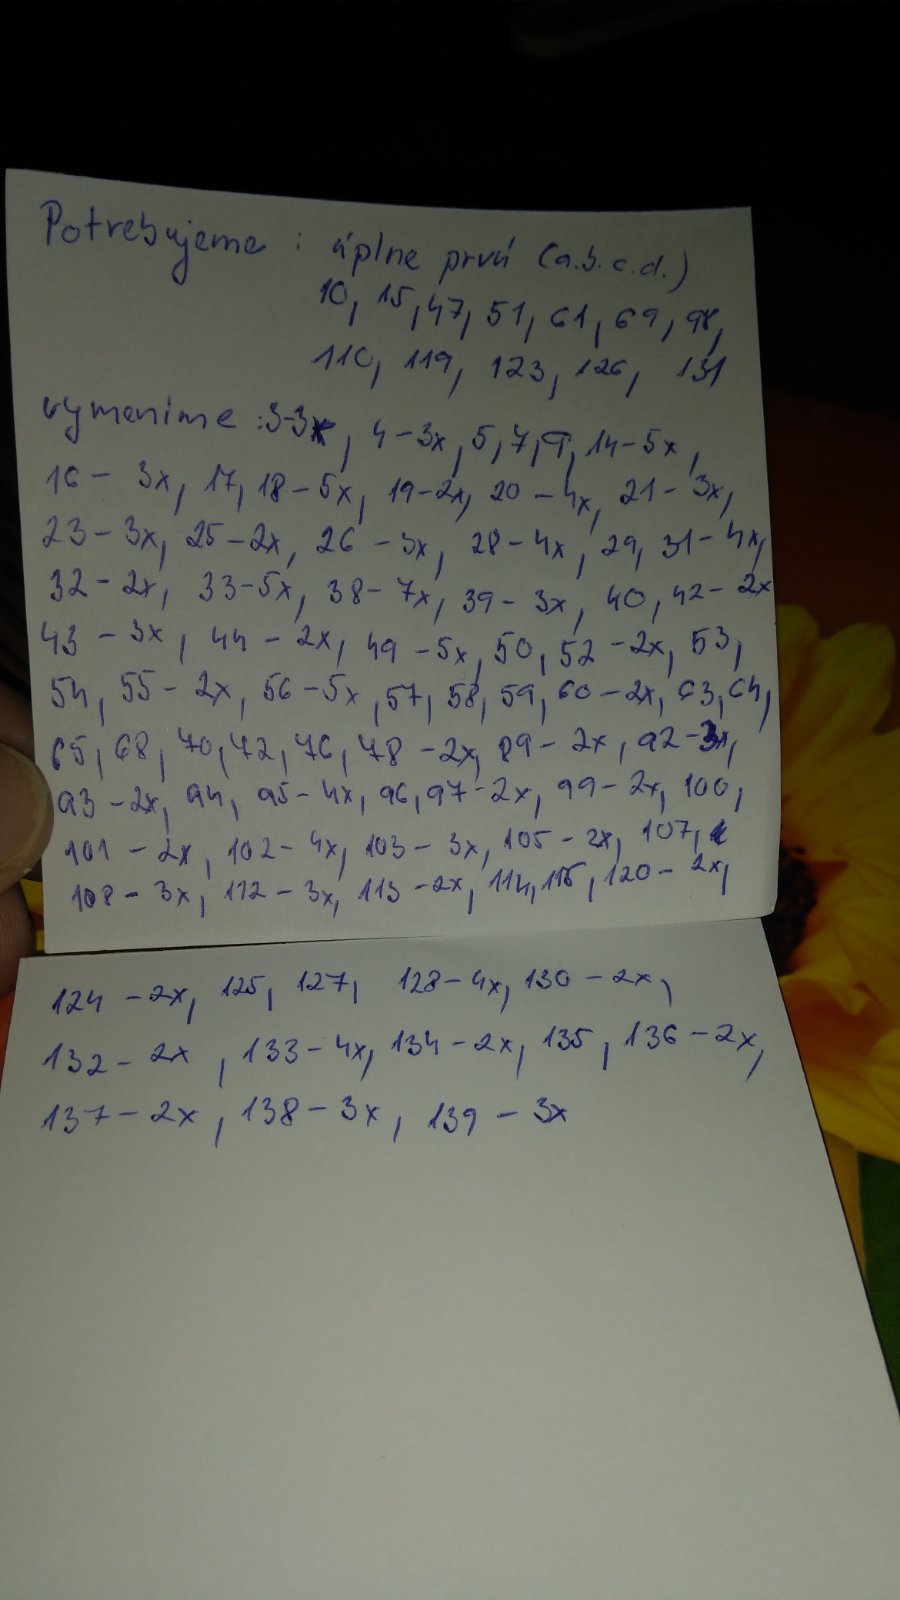 Potrebujeme : úplne prvú (a.b.c.d.)
10, 15, 47, 51, 61, 69, 98,
110, 119, 123, 126, 131
vymenime : 3-3x, 4-3x, 5, 7, 9, 14-5x,
16 - 3x, 17, 18-5x, 19-2x, 20-4x, 21-3x,
23-3x, 25-2x, 26-3x, 28-4x, 29, 31-4x,
32-2x, 33-5x, 38-7x, 39-3x, 40, 42-2x
43-3x, 44-2x, 49-5x, 50, 52-2x, 53,
54, 55-2x, 56-5x, 57, 58, 59, 60-2x, 63, 64,
65, 68, 70, 72, 76, 78-2x, 89-2x, 92-3x,
93-2x, 94, 95-4x, 96, 97-2x, 99-2x, 100,
101-2x, 102-4x, 103-3x, 105-2x, 107,
108-3x, 112-3x, 113-2x, 114, 120-2x,
124-2x, 125, 127, 128-4x, 130-2x,
132-2x, 133-4x, 134-2x, 135, 136-2x,
137-2x, 138-3x, 139-3x